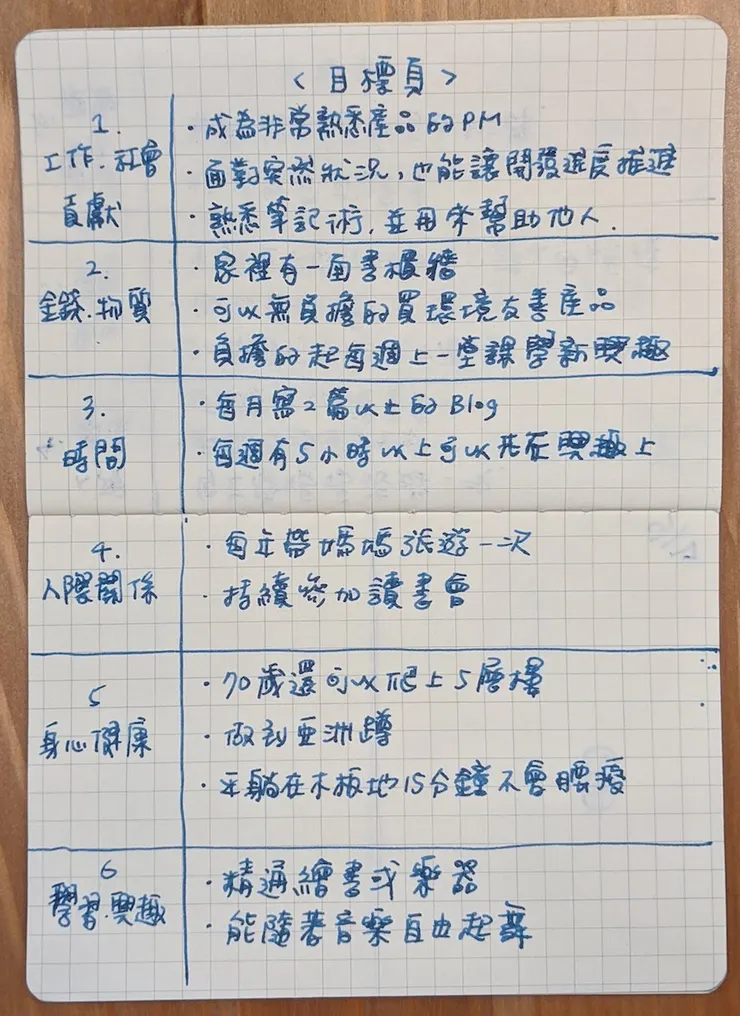 <目標頁>
1.
工作.社會
貢獻
・成為非常熟悉產品的PM
・面對突然狀況,也能讓開發進度推進
・熟悉筆記術,並用來幫助他人.
2.
金錢.物質
・家裡有一面書櫃牆
・可以無負擔的買環境友善產品
・負擔的起每週上一堂課學新興趣
3.
時間
・每月寫2篇以上的Blog
・每週有5小時以上可以花在興趣上
4.
人際關係
・每年帶媽媽旅遊一次
・持續參加讀書會
5
身心健康
・70歲還可以爬上5層樓
・做到亞洲蹲
・平躺在木板地15分鐘不會腰痠
6
學習.興趣
・精通繪畫或樂器
・能隨著音樂自由起舞